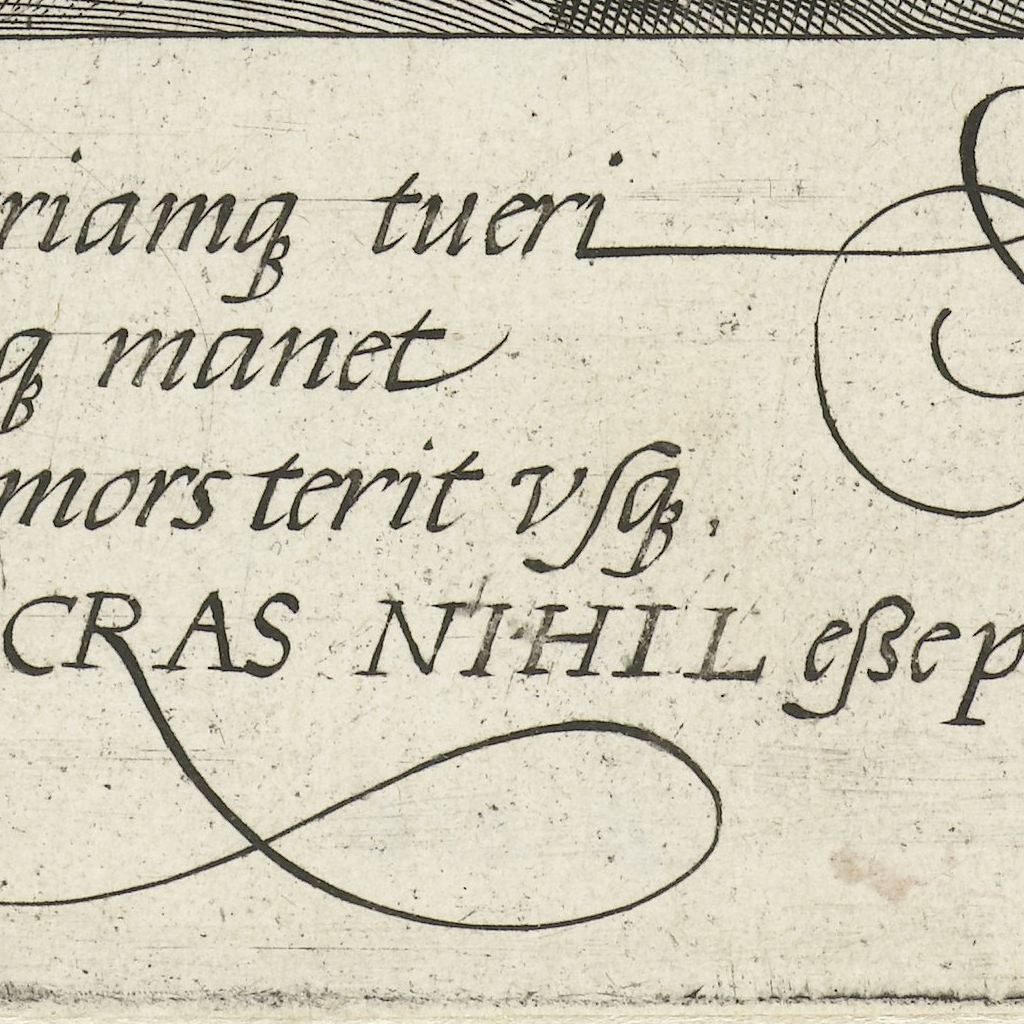 riamqꝫ tueri
qꝫ manet
mors terit vſqꝫ.
CRAS NIHIL eße p